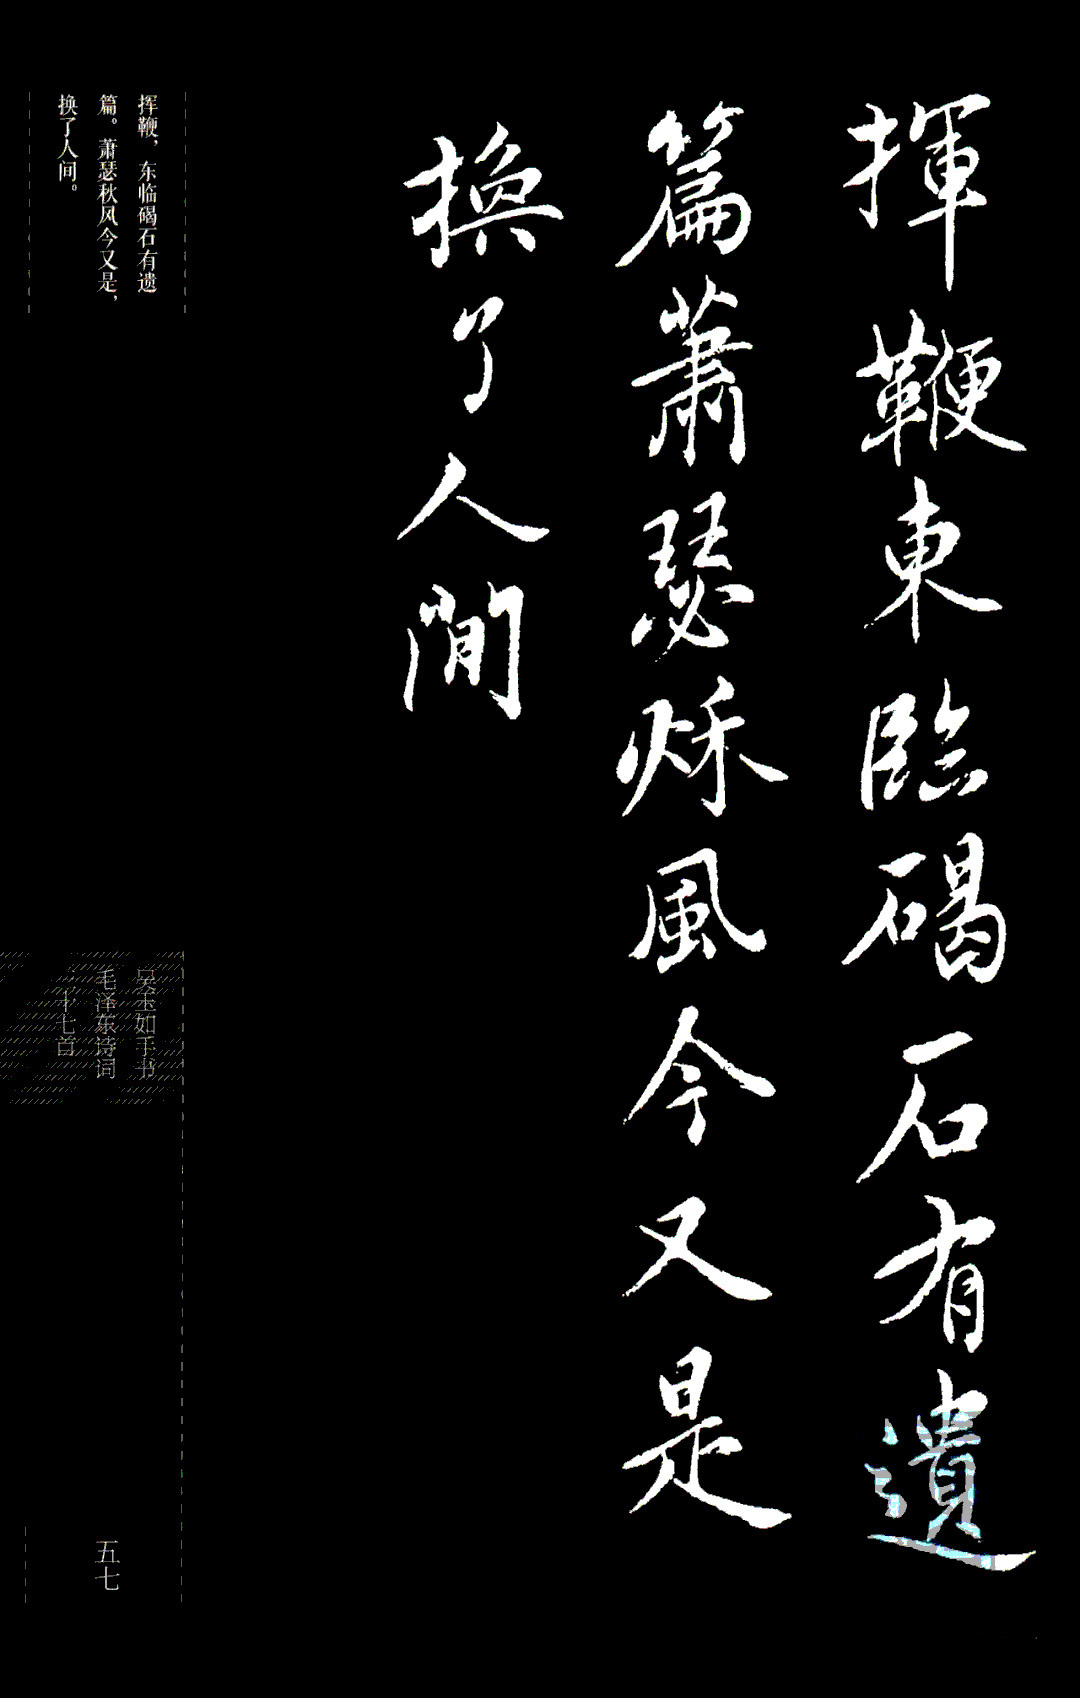 揮鞭東臨碣石有遺
篇蕭瑟秌風今又是
換了人間
挥鞭，东临碣石有遗
篇。萧瑟秋风今又是，
换了人间。
吴玉如手书
毛泽东诗词
二十七首
五七